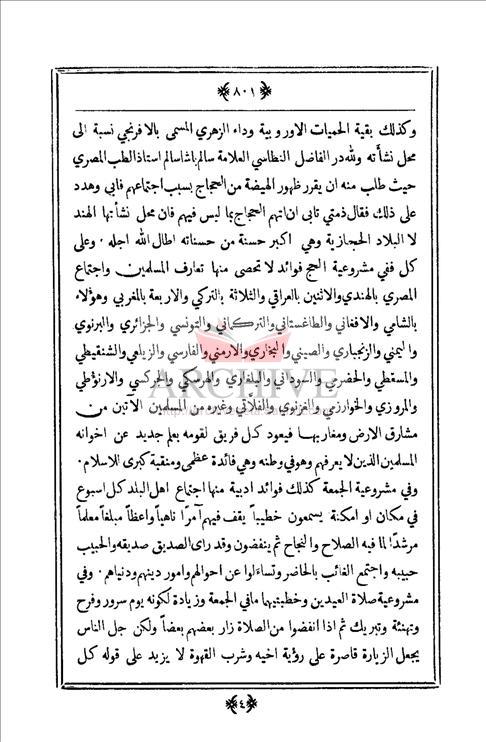 ٨٠١
وكذلك بقية الحميات الاوروبية وداء الزهري المسمى بالافرنجي نسبة الى
محل نشأته ولله در الفاضل النطاسي العلامة سالم باشا سالم استاذ الطب المصري
حيث طلب منه ان يقرر ظهور الهيضة من الحجاج بسبب اجتماعهم فابى وهدد
على ذلك فقال ذمتي تابى ان اتهم الحجاج بما ليس فيهم فان محل نشأتها الهند
لا البلاد الحجازية وهي اكبر حسنة من حسناته اطال الله اجله . وعلى
كل ففي مشروعية الحج فوائد لا تحصى منها تعارف المسلمين واجتماع
المصري بالهندي والاثنين بالعراقي والثلاثة بالتركي والاربعة بالمغربي وهؤلاء
بالشامي والافغاني والطاغستاني والتركماني والتونسي والجزائري والبرنوي
واليمني والزنجباري والصيني والبخاري والارمني والفارسي والزيلعي والشنقيطي
والمسقطي والحضرمي والسوداني والبلغاري والهرسكي والجركسي والارنؤطي
والمروزي والخوارزمي والغزنوي والفلاتي وغيره من المسلمين الآتين من
مشارق الارض ومغاربها فيعود كل فريق لقومه بعلم جديد عن اخوانه
المسلمين الذين لا يعرفهم وهو في وطنه وهي فائدة عظمى ومنقبة كبرى للاسلام .
وفي مشروعية الجمعة كذلك فوائد ادبية منها اجتماع اهل البلد كل اسبوع
في مكان او امكنة يسمعون خطيباً يقف فيهم آمرًا ناهياً واعظاً مبلغاً معلماً
مرشدًا لما فيه الصلاح والنجاح ثم ينفضون وقد رأى الصديق صديقه والحبيب
حبيبه واجتمع الغائب بالحاضر وتساءلوا عن احوالهم وامور دينهم ودنياهم . وفي
مشروعية صلاة العيدين وخطبتيها ما في الجمعة وزيادة لكونه يوم سرور وفرح
وتهنئة وتبريك ثم اذا انفضوا من الصلاة زار بعضهم بعضاً ولكن جل الناس
يجعل الزيارة قاصرة على رؤية اخيه وشرب القهوة لا يزيد على قوله كل
٤
ARCHIVE